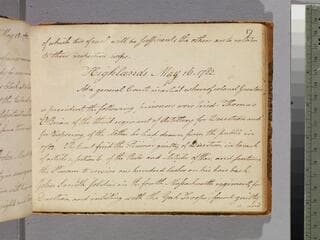 57
of which two of each will be sufficient, the other are to return
to their respective corps.
Highlands, May 16. 1782
At a general Court martial whereof colonel Greaton
is president the following prisoners were tried. Thomas
O'Brian of the third regiment of Artillery for Desertion and
for disposing of the Clothes he had drawn from the public in
1782. The Court find the Prisoner guilty of Desertion in breach
of article of the Rules and Articles of war and sentence
the Prisoner to receive one hundred lashes on his bare back
John Smith soldier in the fourth Massachusetts regiment for
Desertion and inlisting with the York Troops found guilty